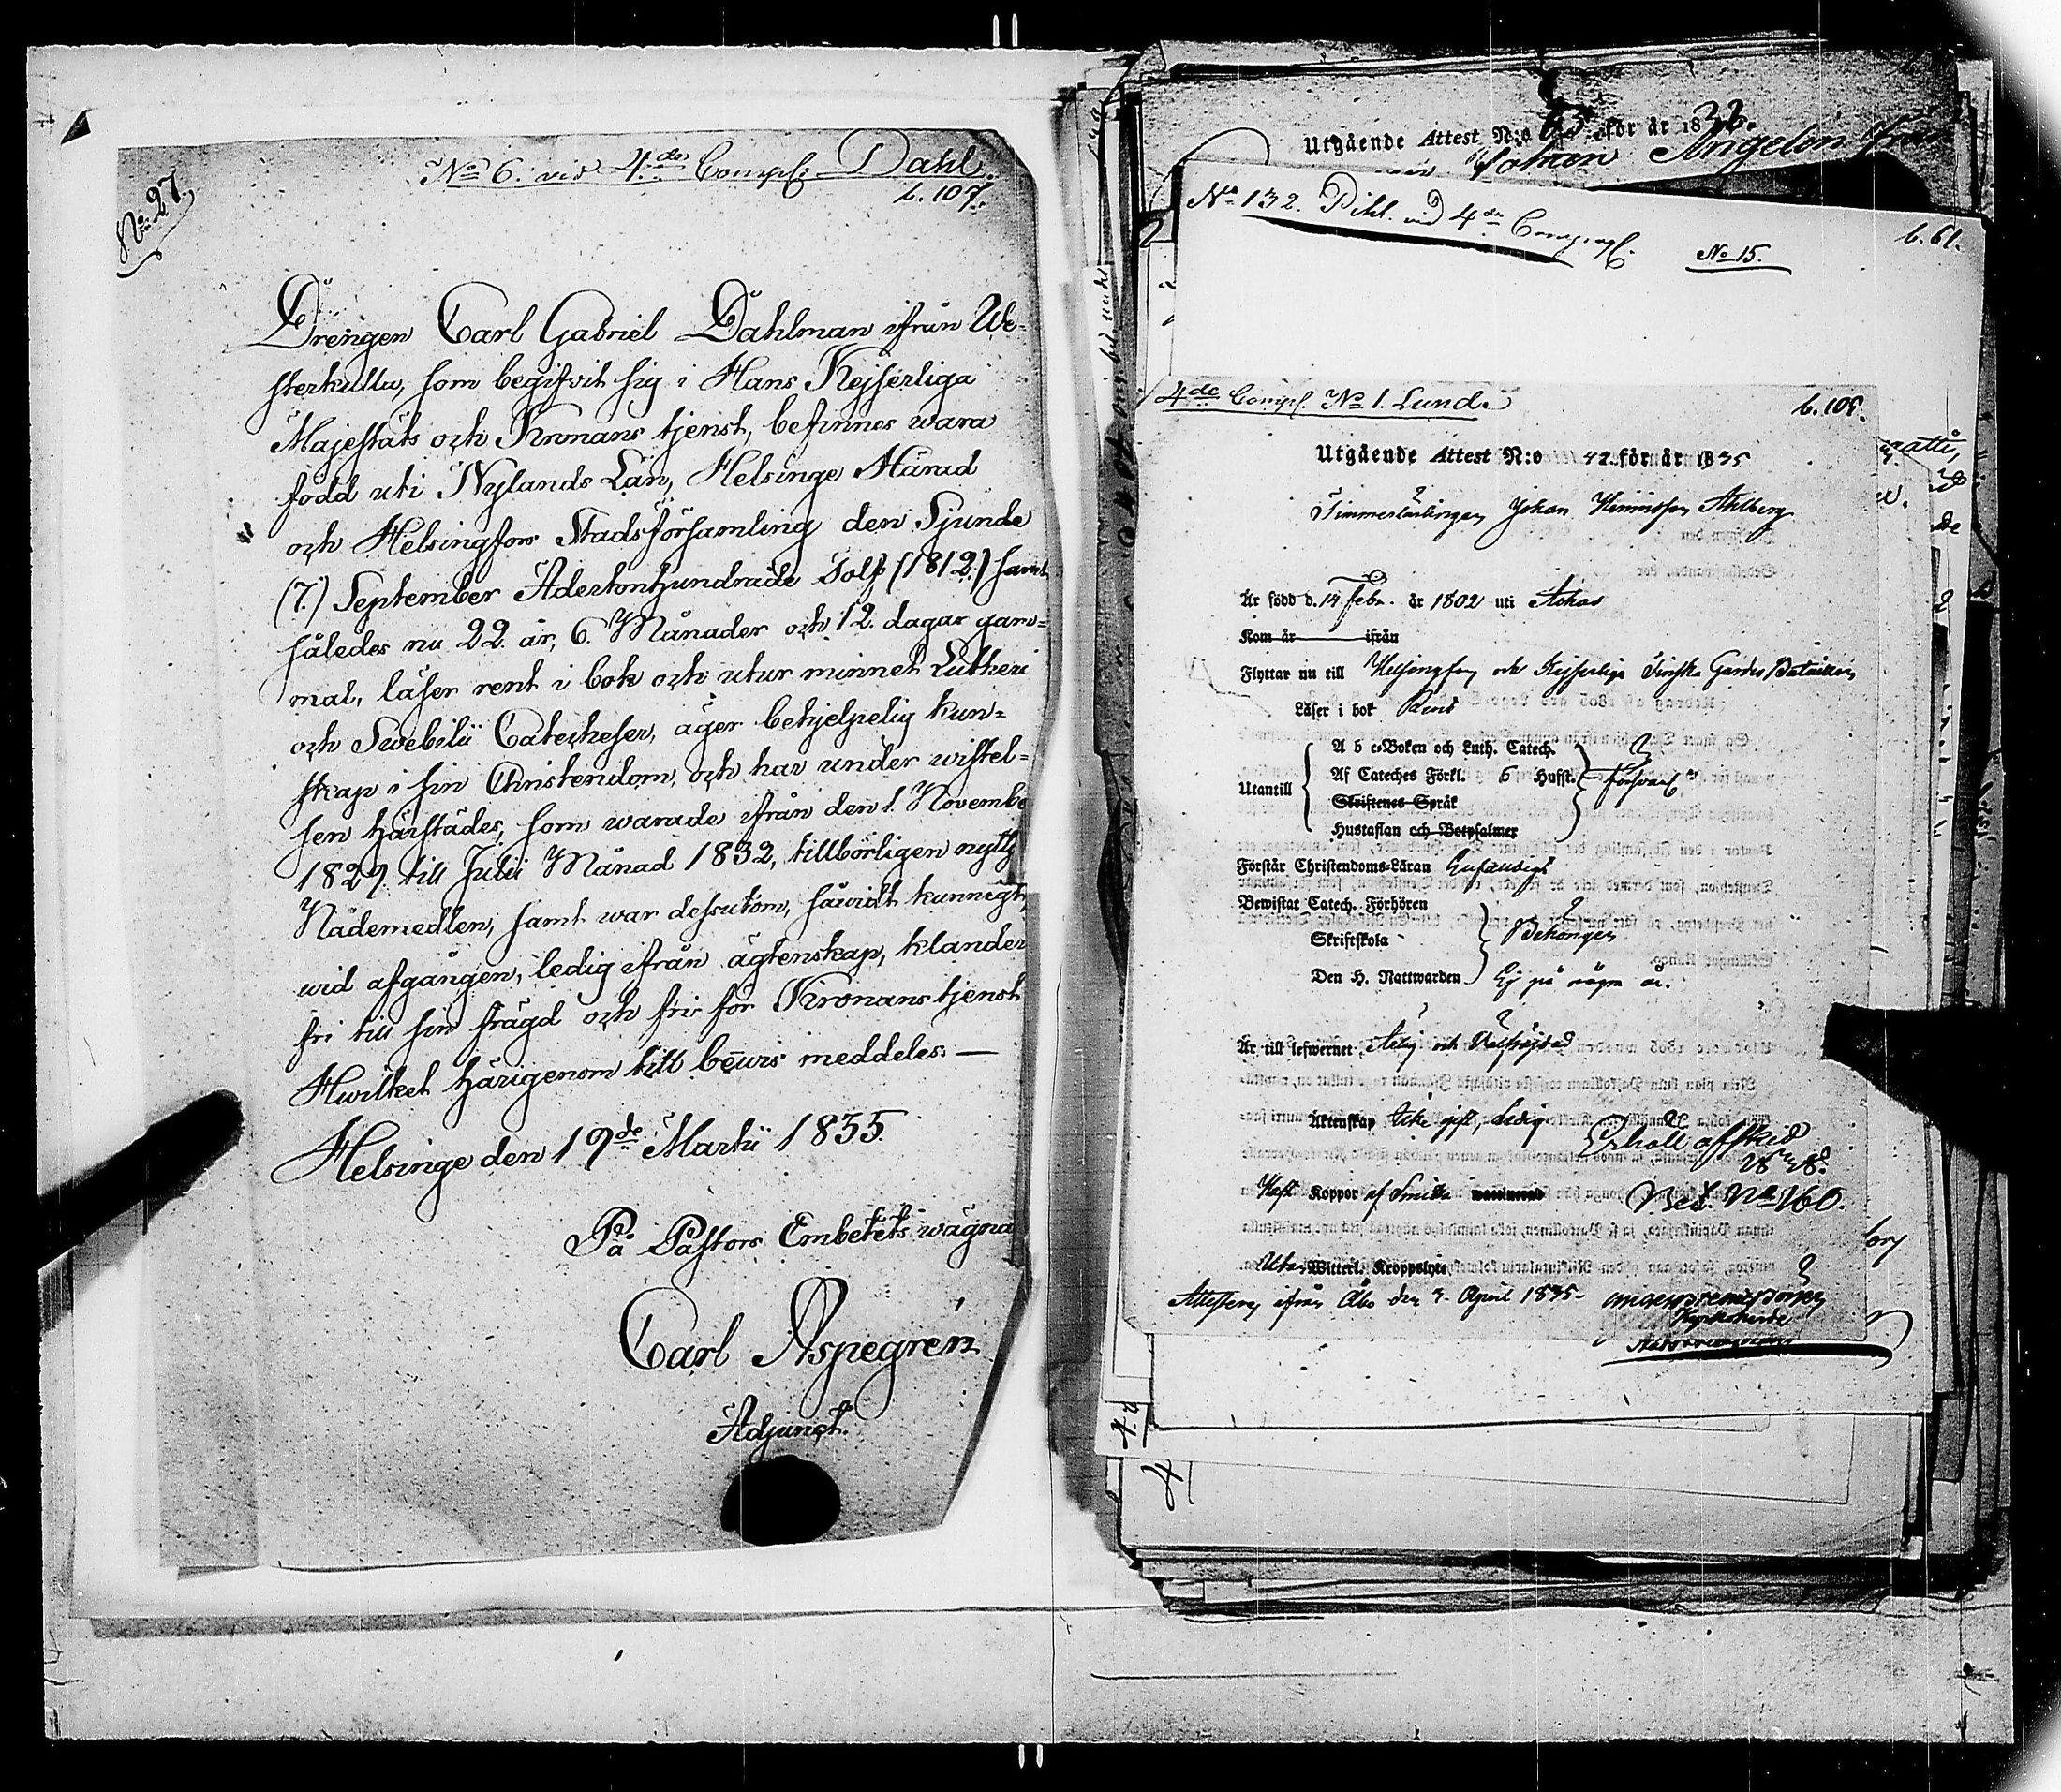 No 27.
No 6. vid 4de Comp: Dahl.
b. 107.
Drengen Carl Gabriel Dahlman ifrån We-
sterkulla, som begifvit sig i Hans Kejserliga
Majestäts och Kronans tjenst, befinnes wara
född uti Nylands Län, Helsinge Härad
och Helsingfors Stadsförsamling den Sjunde
(7.) September Adertonhundrade Tolf (1812.) samt
således nu 22 år, 6. Månader och 12. dagar gam-
mal, läser rent i bok och utur minnet Lutheri
och Swebilii Catecheser, äger behjelpelig kun-
skap i sin Christendom, och har under wistel-
sen härstädes, som warade ifrån den 1. Novemb
1829 till Julii Månad 1832, tillbörligen nyttj
Nådemedlen, samt war dessutom, såwidt kunnigt,
wid afgången, ledig ifrån ägtenskap, klander
fri till sin frägd och fri för Kronans tjenst
Hwilket härigenom till bewis meddeles. —
Helsinge den 19de Martii 1835.
På Pastors Embetets wägna
Carl Aspegren
Adjunct.
Utgående Attest N:o 65 för år 183
Johan Angelin
No 132. Pihl. vid 4de Comp.
No 15.
b. 61.
4de Comp. No 1. Lund.
b. 108.
Utgående Attest N:o 42 för år 1835
Johan Ahlberg
Är född d. 14 Febr. år 1802 uti
Kom år ifrån
Flyttar nu till Helsingfors och Kejserliga Finska Gardes Bataillon
Läser i bok Rent
A b c-Boken och Luth. Catech.
Af Cateches Förkl. 6 Hufst.
Utantill
Försvarl
Skriftenes Språk
Hustaflan och Botpsalmer
Förstår Christendoms-Läran Enfaldigt
Bewistat Catech. Förhören
Skriftskola
Den H. Nattwarden Ej på några år.
Är till lefwernet Ärlig och Välfrejdad
Äktenskap Icke gift, Ledig
Erhöll afsked
Haft Koppor af Smitta waccinerad
Bes. No 160.
Utan Witterl. Kroppslyte
Attesteras ifrån Åbo den 3. April 1835.